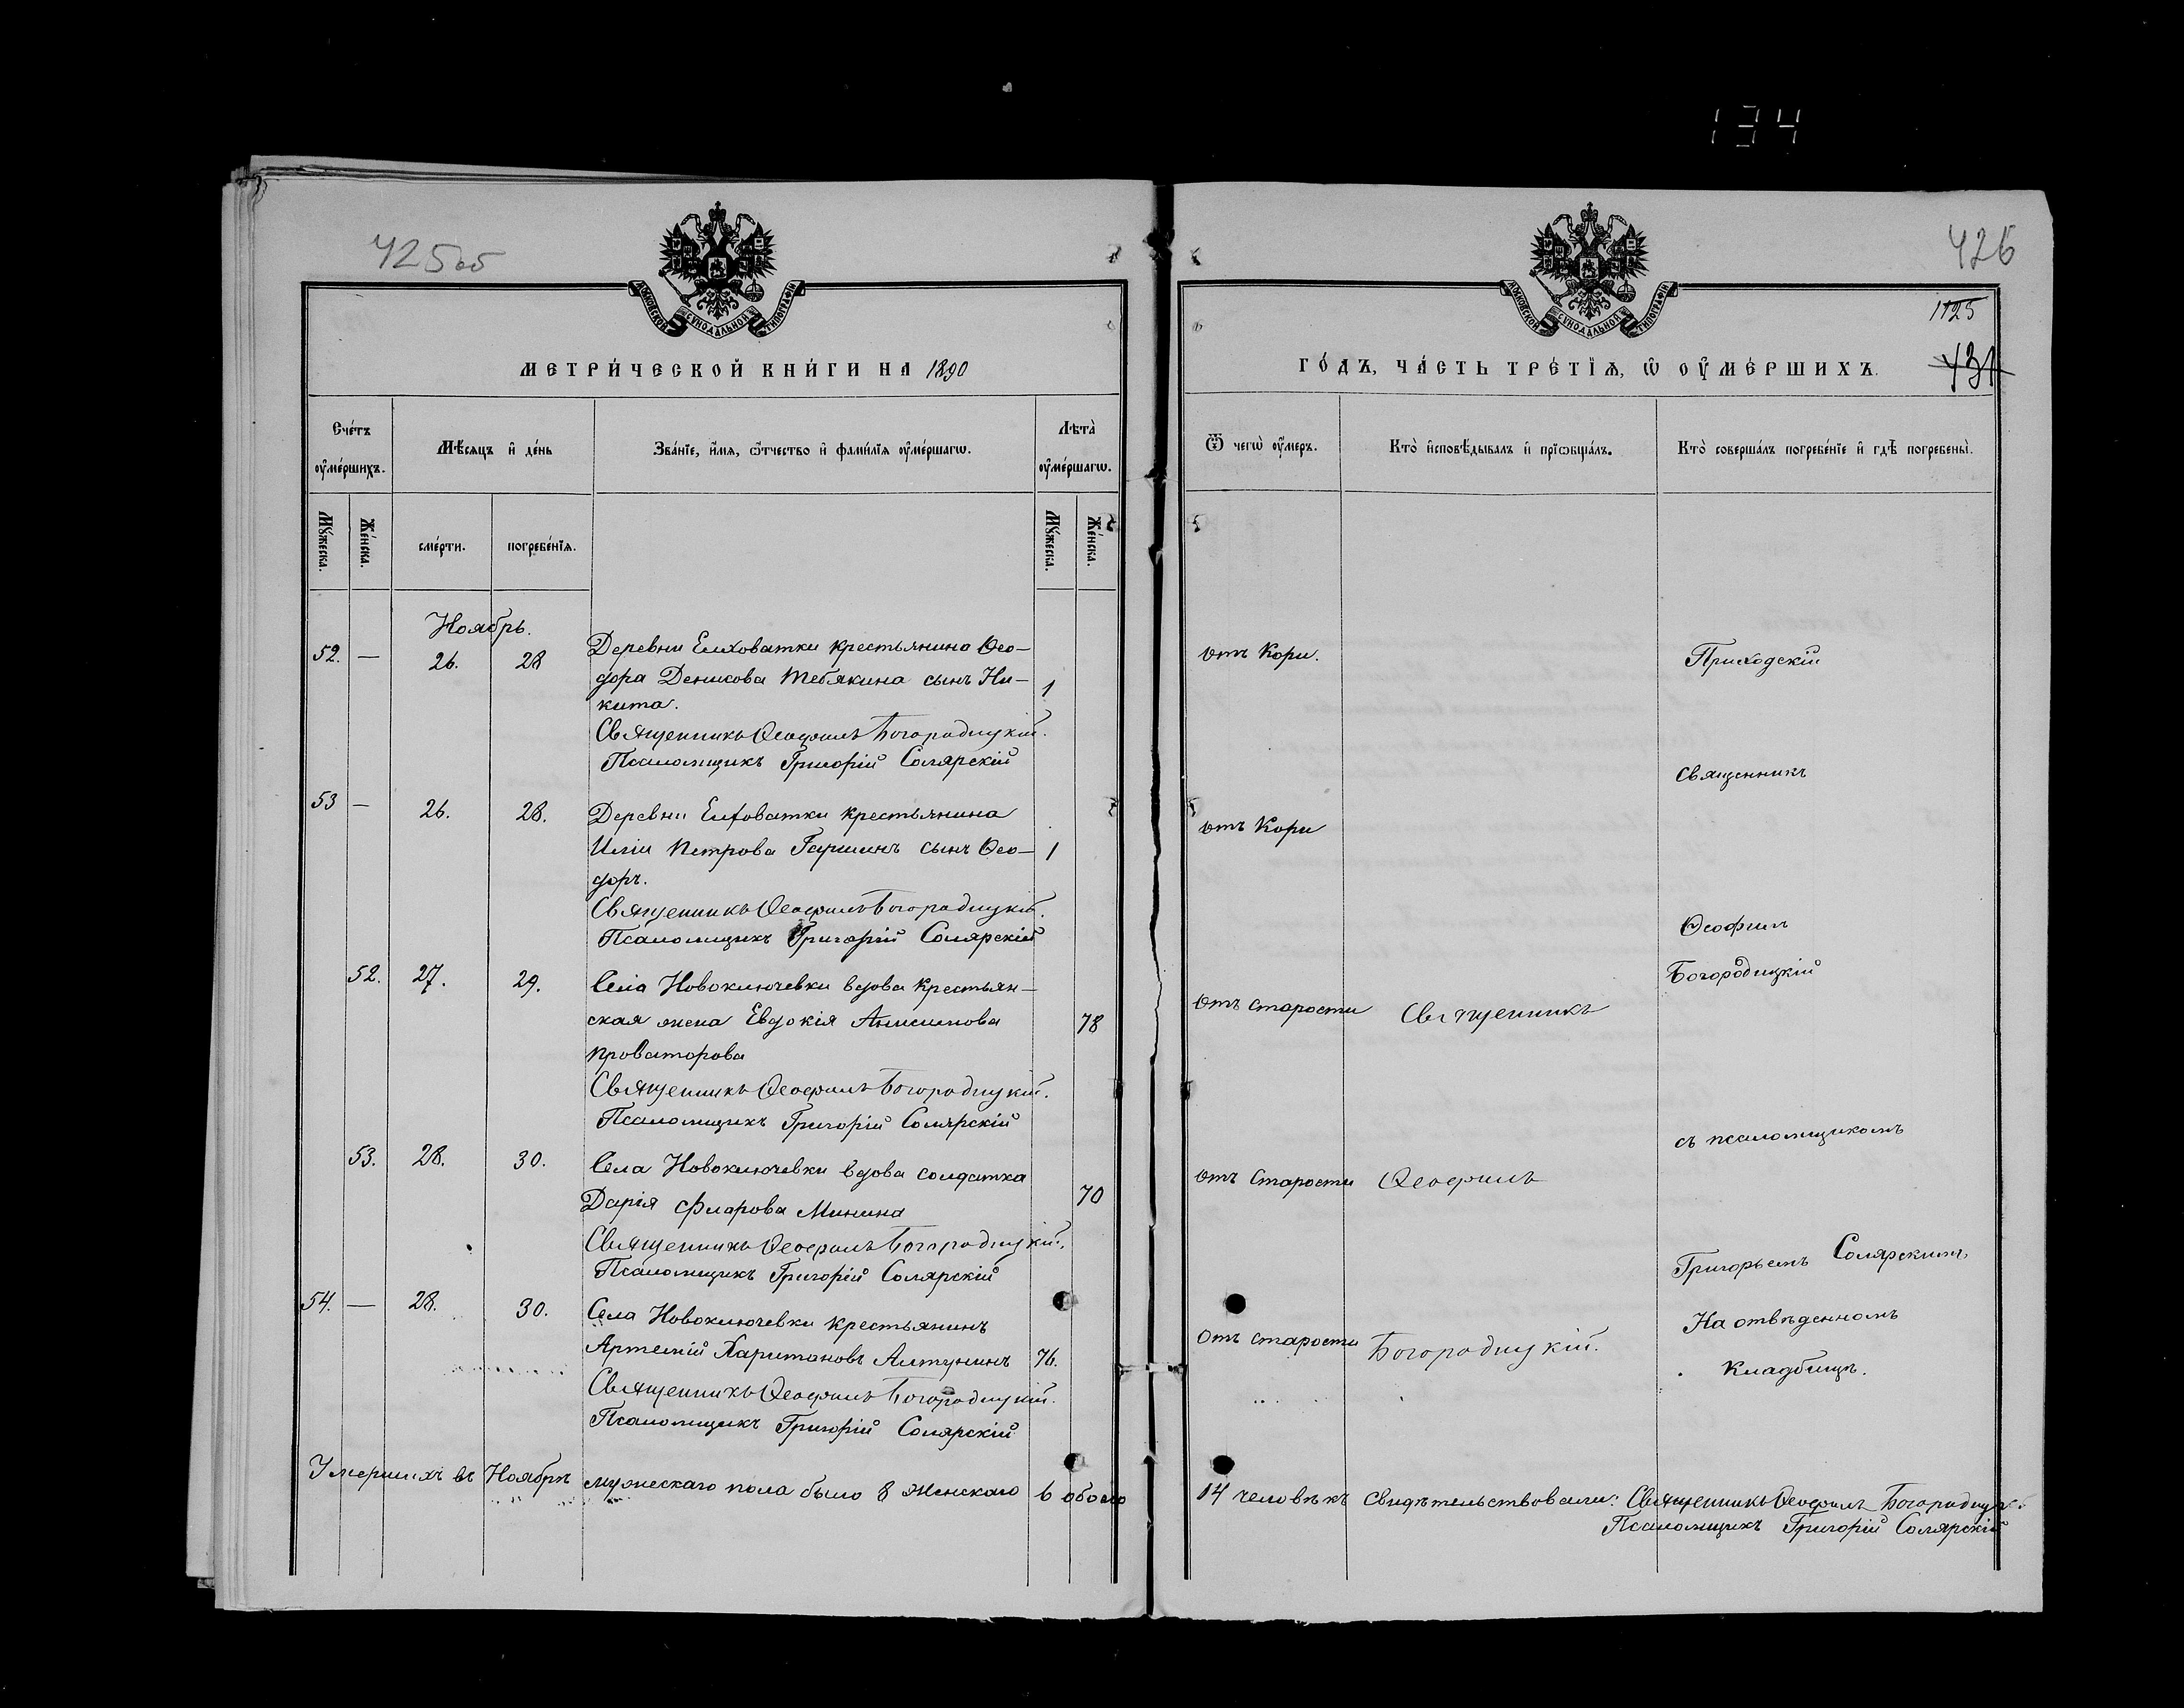 134
425об
МОСКОВСКОЙ СѴНОДАЛЬНОЙ ТИПОГРАФІИ
МЕТРИ́ЧЕСКОЙ КНИ́ГИ НА 1890
Сче́тъ ᲂу҆ме́ршихъ.
Мѣ́сяцъ и҆ де́нь
Зва́нїе, и҆́мѧ, ѻ҆́тчество и҆ фами́лїѧ ᲂу҆ме́ршагѡ.
Лѣта̀ ᲂу҆ме́ршагѡ.
Мꙋ́жеска.
Же́нска.
сме́рти.
погребе́нїѧ.
Мꙋ́жеска.
Же́нска.
Ноябрь.
52. — 26. 28 Деревни Елховатки крестьянина Ѳео-
дора Денисова Тебякина сынъ Ни- 1
кита.
Священникъ Ѳеофилъ Богородицкій.
Псаломщикъ Григорій Солярскій
53 — 26. 28. Деревни Елховатки крестьянина
Иліи Петрова Гаршинъ сынъ Ѳео- 1
доръ.
Священникъ Ѳеофилъ Богородицкій.
Псаломщикъ Григорій Солярскій
52. 27. 29. Села Новоключевки вдова крестьян-
ская жена Евдокія Анисимова 78
Проваторова
Священникъ Ѳеофилъ Богородицкій.
Псаломщикъ Григорій Солярскій
53. 28. 30. Села Новоключевки вдова солдатка
Дарія Фларова Минина 70
Священникъ Ѳеофилъ Богородицкій.
Псаломщикъ Григорій Солярскій
54. — 28. 30. Села Новоключевки крестьянинъ
Артемій Харитоновъ Алтунинъ 76.
Священникъ Ѳеофилъ Богородицкій.
Псаломщикъ Григорій Солярскій
Умершихъ въ Ноябрѣ мужескаго пола было 8 женскаго 6 обоего
426
1125
431
МОСКОВСКОЙ СѴНОДАЛЬНОЙ ТИПОГРАФІИ
ГО́ДЪ, ЧА́СТЬ ТРЕ́ТЇѦ, Ѡ҆ ОУ҆МЕ́РШИХЪ.
Ѿ чегѡ̀ ᲂу҆́меръ.
Кто̀ и҆сповѣ́дывалъ и҆ прїѡбща́лъ.
Кто̀ соверша́лъ погребе́нїе и҆ гдѣ̀ погребены̀.
отъ Кори.
Приходскій
Священникъ
отъ Кори
Ѳеофилъ
Богородицкій
отъ старости Священникъ
съ псаломщикомъ
отъ старости Ѳеофилъ
Григорьемъ Солярскимъ
На отвѣденномъ
отъ старости Богородицкій.
Кладбищѣ.
14 человѣкъ Свидѣтельствовали: Священникъ Ѳеофилъ Богородицк.
Псаломщикъ Григорій Солярскій